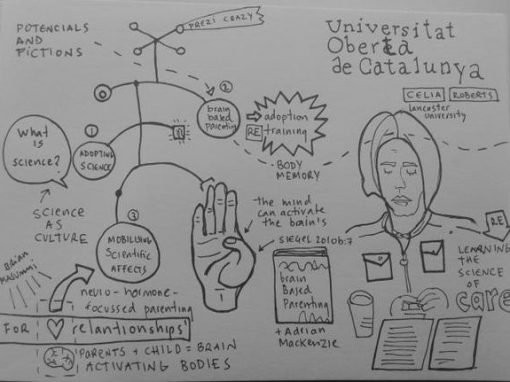 POTENCIALS
AND
FICTIONS
PREZI CRAZY
Universitat
Oberta
de Catalunya
CELIA ROBERTS
lancaster
university
0
2
brain
based
parenting
adoption
RE training
1
What
is
science?
ADOPTING
SCIENCE
BODY
MEMORY
SCIENCE
AS
CULTURE
3
MOBILISING
Scientific
AFFECTS
the mind
can activate
the brain's
SIEGEL 2010b:7
brain
Based
Parenting
+ Adrian
Mackenzie
RE
LEARNING
THE
SCIENCE
OF
care
Brian
neuro-hormone-
focussed parenting
FOR relantionships
PARENTS + CHILD = BRAIN
ACTIVATING BODIES